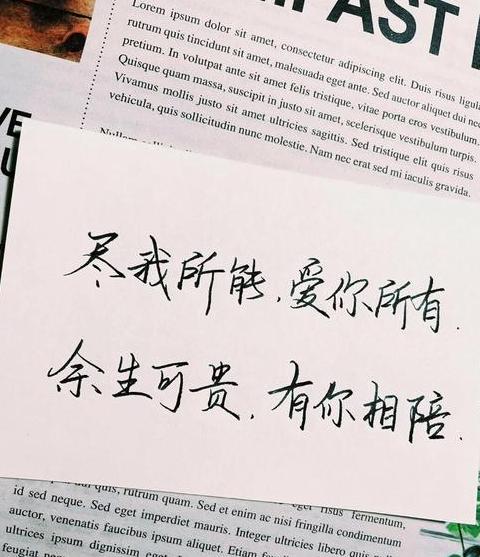 FAST
Lorem ipsum dolor sit amet, consectetur adipiscing elit. Duis risus ligula
rutrum quis tincidunt sit amet, malesuada eget ante. Sed auctor aliquet dui nec
pretium. In volutpat ante sit amet felis tristique, vitae porta eros vestibulum.
Quisque quam massa, suscipit in justo sit amet, scelerisque vestibulum turpis.
Vivamus mollis justo sit amet ultricies sagittis. Sed tristique elit quis risus
vehicula, quis sollicitudin nunc molestie. Nam nec erat sed mi iaculis gravida.
尽我所能,爱你所有.
余生可贵,有你相陪.
quis, rutrum quam. Sed et enim ac nisi fringilla condimentum
eget risus fermentum,
id sed neque. Sed eget imperdiet mauris. Integer ultricies libero quis
auctor, venenatis faucibus ipsum aliquet. Etiam
ultrices ipsum dignissim eget
feugiat